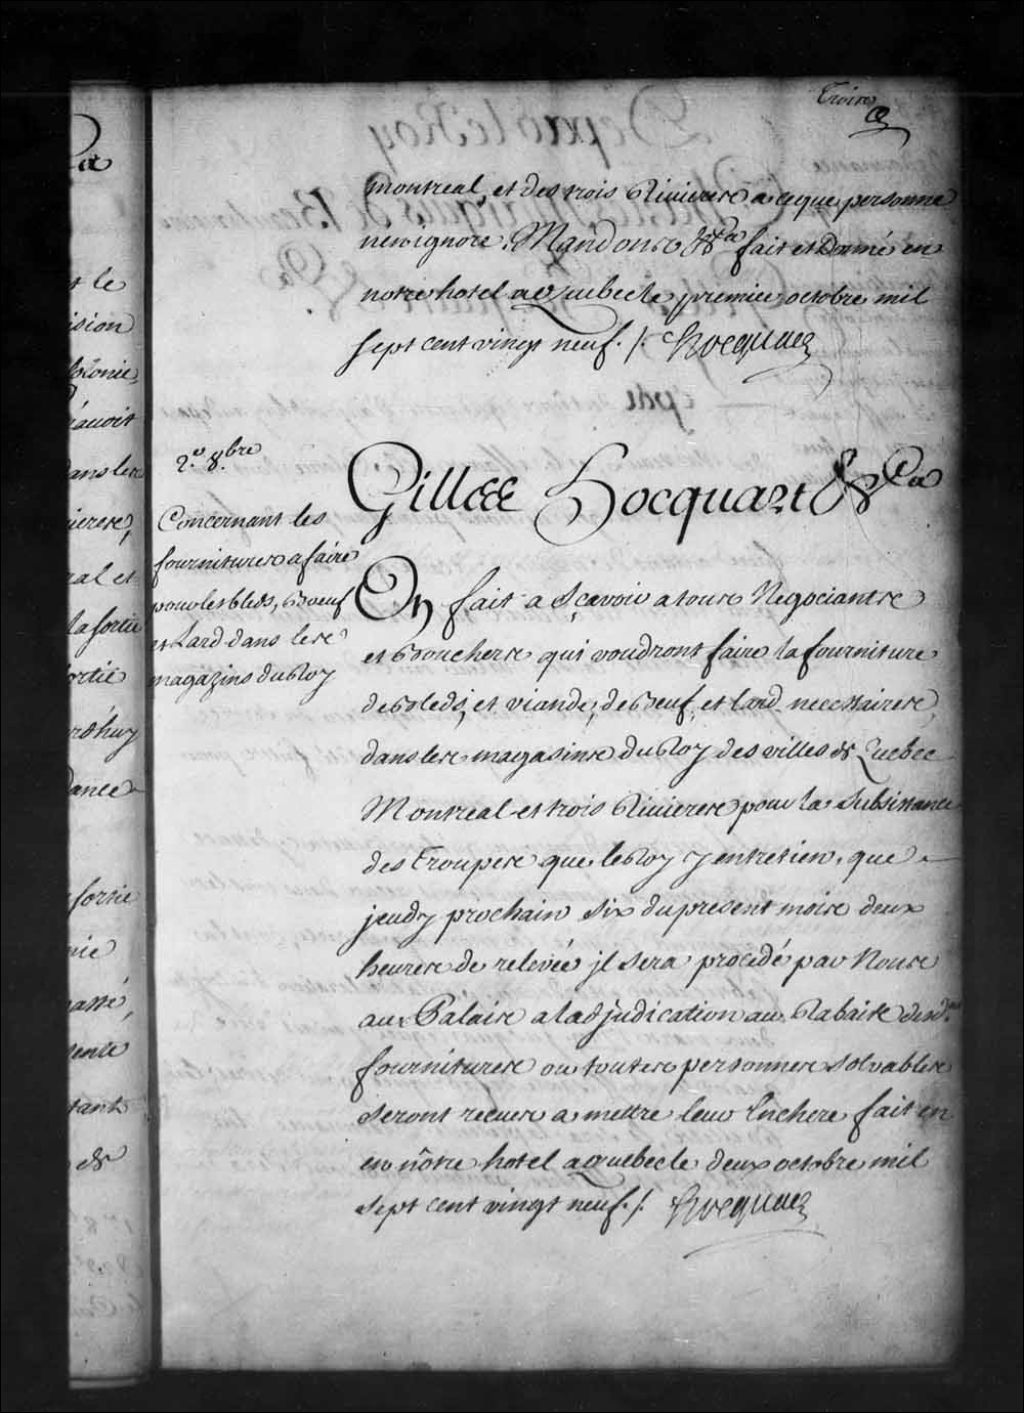 Trois
montreal, et des trois Rivieres a ceque personne
nen ignore. Mandons &ca fait et Donné en
notre hotel a Quebec le premier octobre mil
sept cent vingt neuf ./. Hocquart
2e. 8.bre
Concernant les
fournitures a faire
pour les bleds, boeuf
et Lard dans les
magazins du Roy
Gilles Hocquart &ca
On fait a Sçavoir a tous Negociants
et Bouchers qui voudront faire la fourniture
de bleds, et viande, de Boeuf, et lard necessaires,
dans les magasins du Roy des villes de Quebec
Montreal et trois Rivieres pour la Subsistance
des Troupes que le Roy y entretien, que
jeudy prochain six du present mois deux
heures de relevée jl sera procedé par Nous
au Palais a ladjudication au Rabais desd.
fournitures ou toutes personnes solvables
seront recues a mettre leur Enchere fait en
en nôtre hotel a quebec le deux octobre mil
sept cent vingt neuf ./. Hocquart
t le
ision
olonie,
auoit
ans les
ieres,
al et
la sortie
ortie
rdhuy
dance
sortie
nie
assé,
tant
de